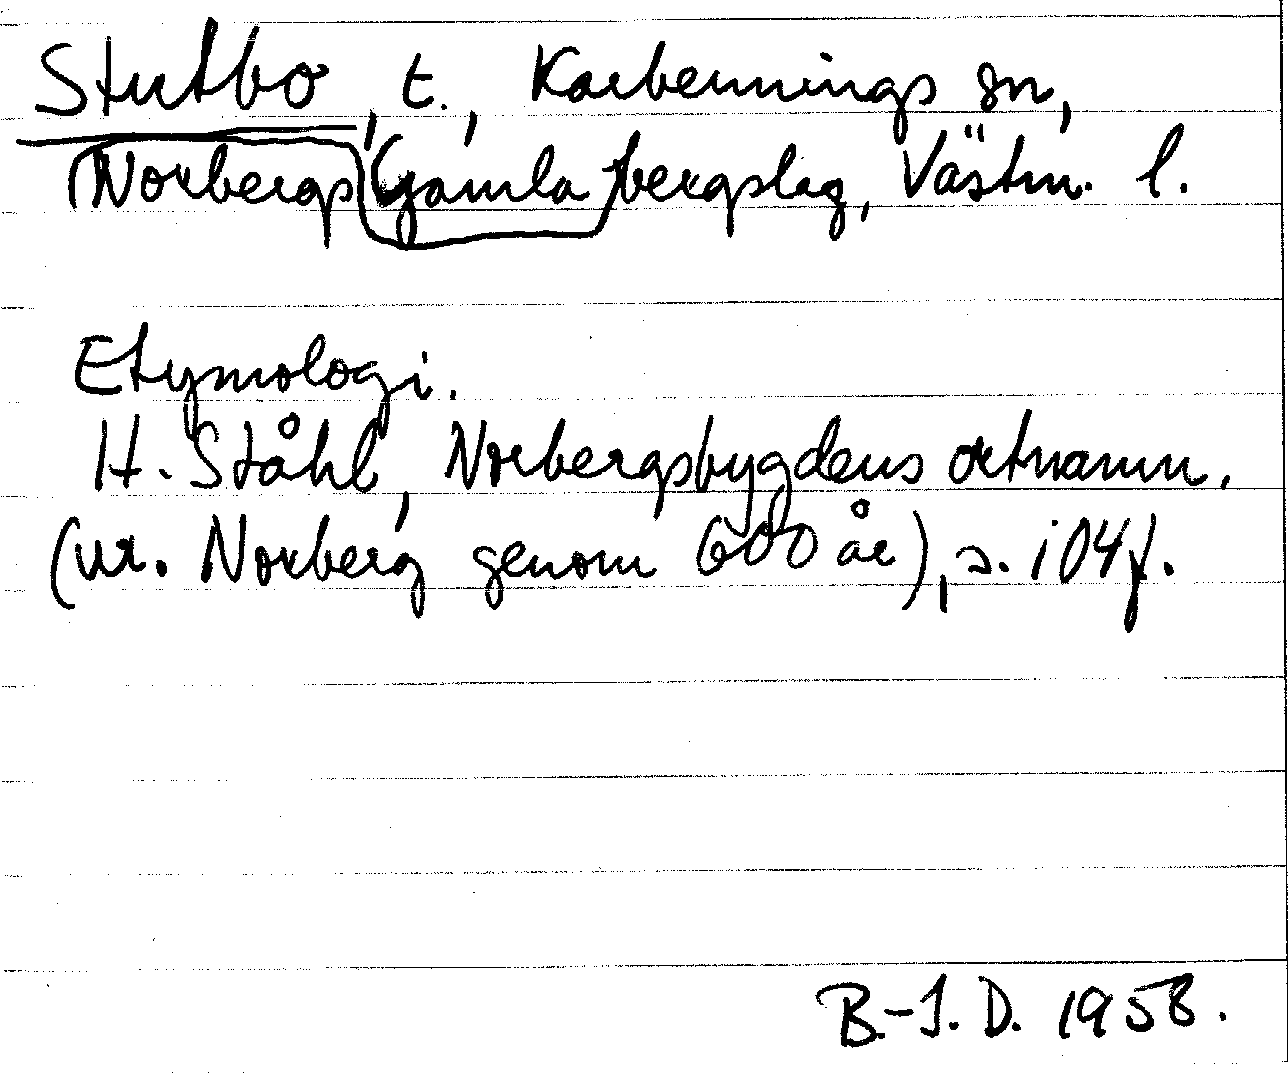 Stutbo, t., Karbennings sn,
Norbergs Gamla bergslag, Västm. l.
Etymologi.
H. Ståhl, Norbergsbygdens ortnamn.
(ur. Norberg genom 600 år), s. 104f.
B.-I. D. 1958.